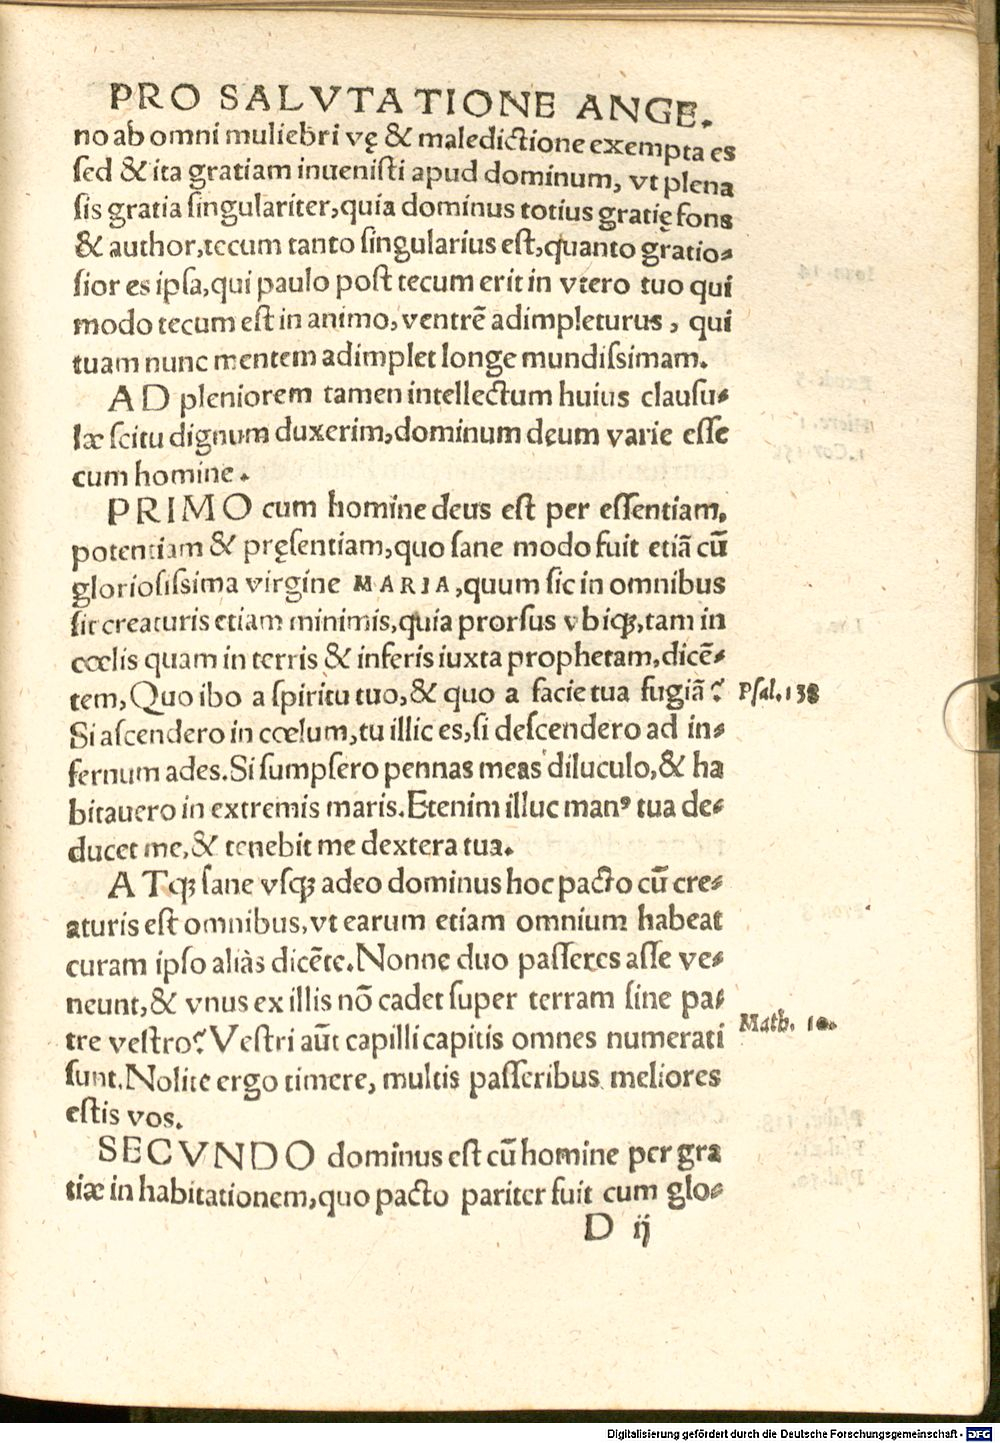 PRO SALVTATIONE ANGE.
no ab omni muliebri vę & maledictione exempta es
sed & ita gratiam inuenisti apud dominum, vt plena
sis gratia singulariter, quia dominus totius gratię fons
& author, tecum tanto singularius est, quanto gratio-
sior es ipsa, qui paulo post tecum erit in vtero tuo qui
modo tecum est in animo, ventrē adimpleturus, qui
tuam nunc mentem adimplet longe mundissimam.
AD pleniorem tamen intellectum huius clausu-
læ scitu dignum duxerim, dominum deum varie esse
cum homine.
PRIMO cum homine deus est per essentiam,
potentiam & pręsentiam, quo sane modo fuit etiā cū
gloriosissima virgine MARIA, quum sic in omnibus
sit creaturis etiam minimis, quia prorsus vbiqꝫ, tam in
cœlis quam in terris & inferis iuxta prophetam, dicē-
tem, Quo ibo a spiritu tuo, & quo a facie tua fugiā? Psal. 138
Si ascendero in cœlum, tu illic es, si descendero ad in-
fernum ades. Si sumpsero pennas meas diluculo, & ha
bitauero in extremis maris. Etenim illuc manꝰ tua de-
ducet me, & tenebit me dextera tua.
ATqꝫ sane vsqꝫ adeo dominus hoc pacto cū cre-
aturis est omnibus, vt earum etiam omnium habeat
curam ipso aliàs dicēte. Nonne duo passeres asse ve-
neunt, & vnus ex illis nō cadet super terram sine pa-
tre vestro? Vestri aūt capilli capitis omnes numerati Math. 10.
sunt. Nolite ergo timere, multis passeribus meliores
estis vos.
SECVNDO dominus est cū homine per gra
tiæ in habitationem, quo pacto pariter fuit cum glo-
D ij
Digitalisierung gefördert durch die Deutsche Forschungsgemeinschaft - DFG